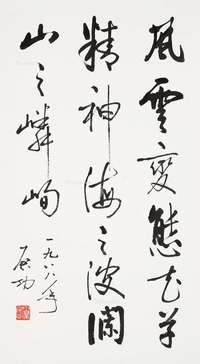 風雲變態花草
精神海之波瀾
山之嶙峋
一九八八年
啟功